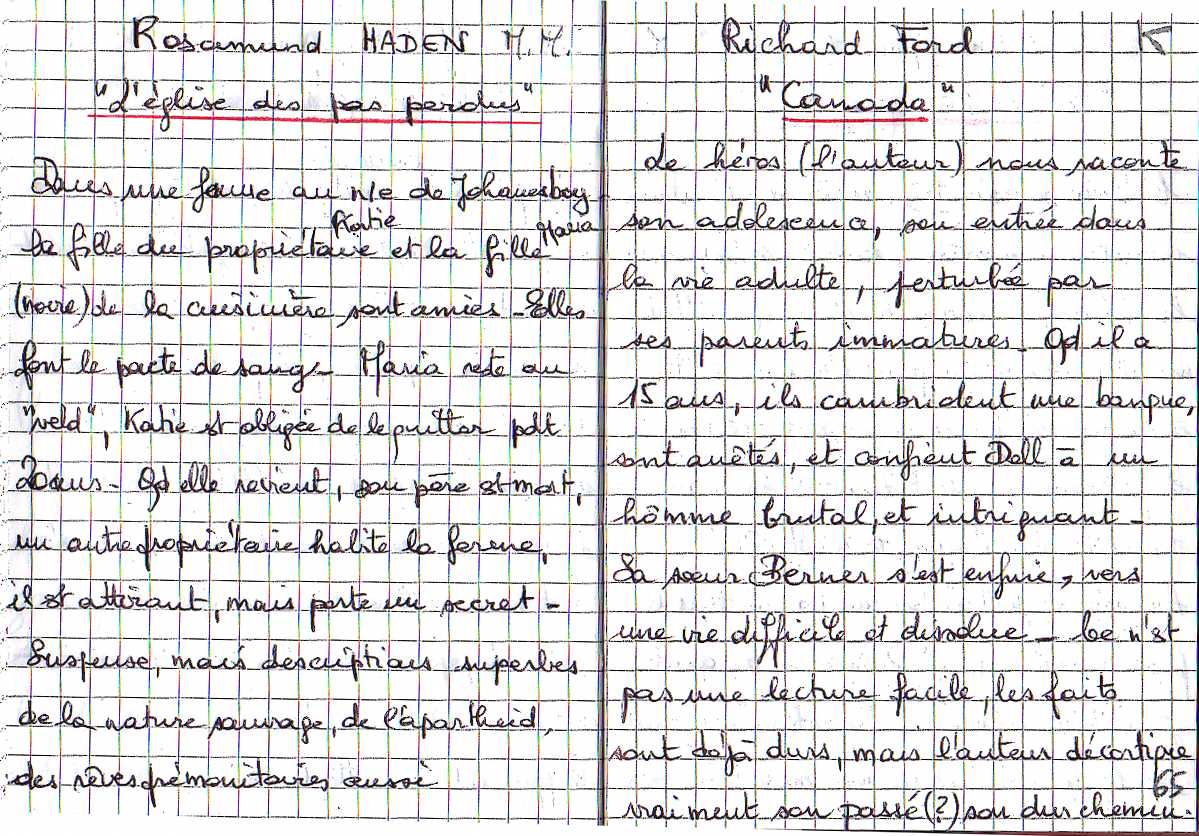 Rosamund HADEN M.M.
"L'église des pas perdus"
Dans une ferme au n/e de Johanesbog
la fille du propriétaire Katie et la fille Maria
(noire) de la cuisinière sont amies - Elles
font le pacte de sang - Maria reste au
"veld", Katie est obligée de le quitter pdt
20 ans - Qd elle revient, son père est mort,
un autre propriétaire habite la ferme,
il est attirant, mais porte un secret -
Suspense, mais descriptions superbes
de la nature sauvage, de l'apartheid,
des rêves prémonitoires aussi
Richard Ford
"Canada"
Le héros (l'auteur) nous raconte
son adolescence, son entrée dans
la vie adulte, perturbée par
ses parents immatures - Qd il a
15 ans, ils cambriolent une banque,
sont arrêtés, et confient Dell à un
hômme brutal, et intriguant -
Sa soeur Berner s'est enfuie, vers
une vie difficile et dissolue - Ce n'est
pas une lecture facile, les faits
sont déjà durs, mais l'auteur décortique
vraiment son passé (?) son dur chemin.
65